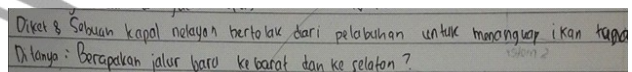 Diket : Sebuah kapal nelayan bertolak dari pelabuhan untuk menangkap ikan
Ditanya : Berapakan jalur baru ke barat dan ke selatan ?